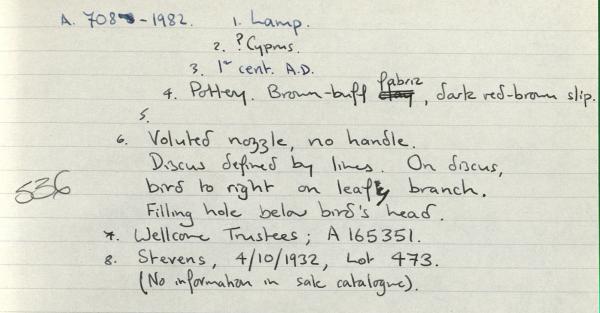 A. 708 - 1982. 1. Lamp.
2. ? Cyprus.
3. 1st cent. A.D.
4. Pottery. Brown-buff clay fabric, dark red-brown slip.
5.
6. Voluted nozzle, no handle.
Discus defined by lines. On discus,
536
bird to right on leafy branch.
Filling hole below bird's head.
7. Wellcome Trustees; A 165351.
8. Stevens, 4/10/1932, Lot 473.
(No information in sale catalogue).